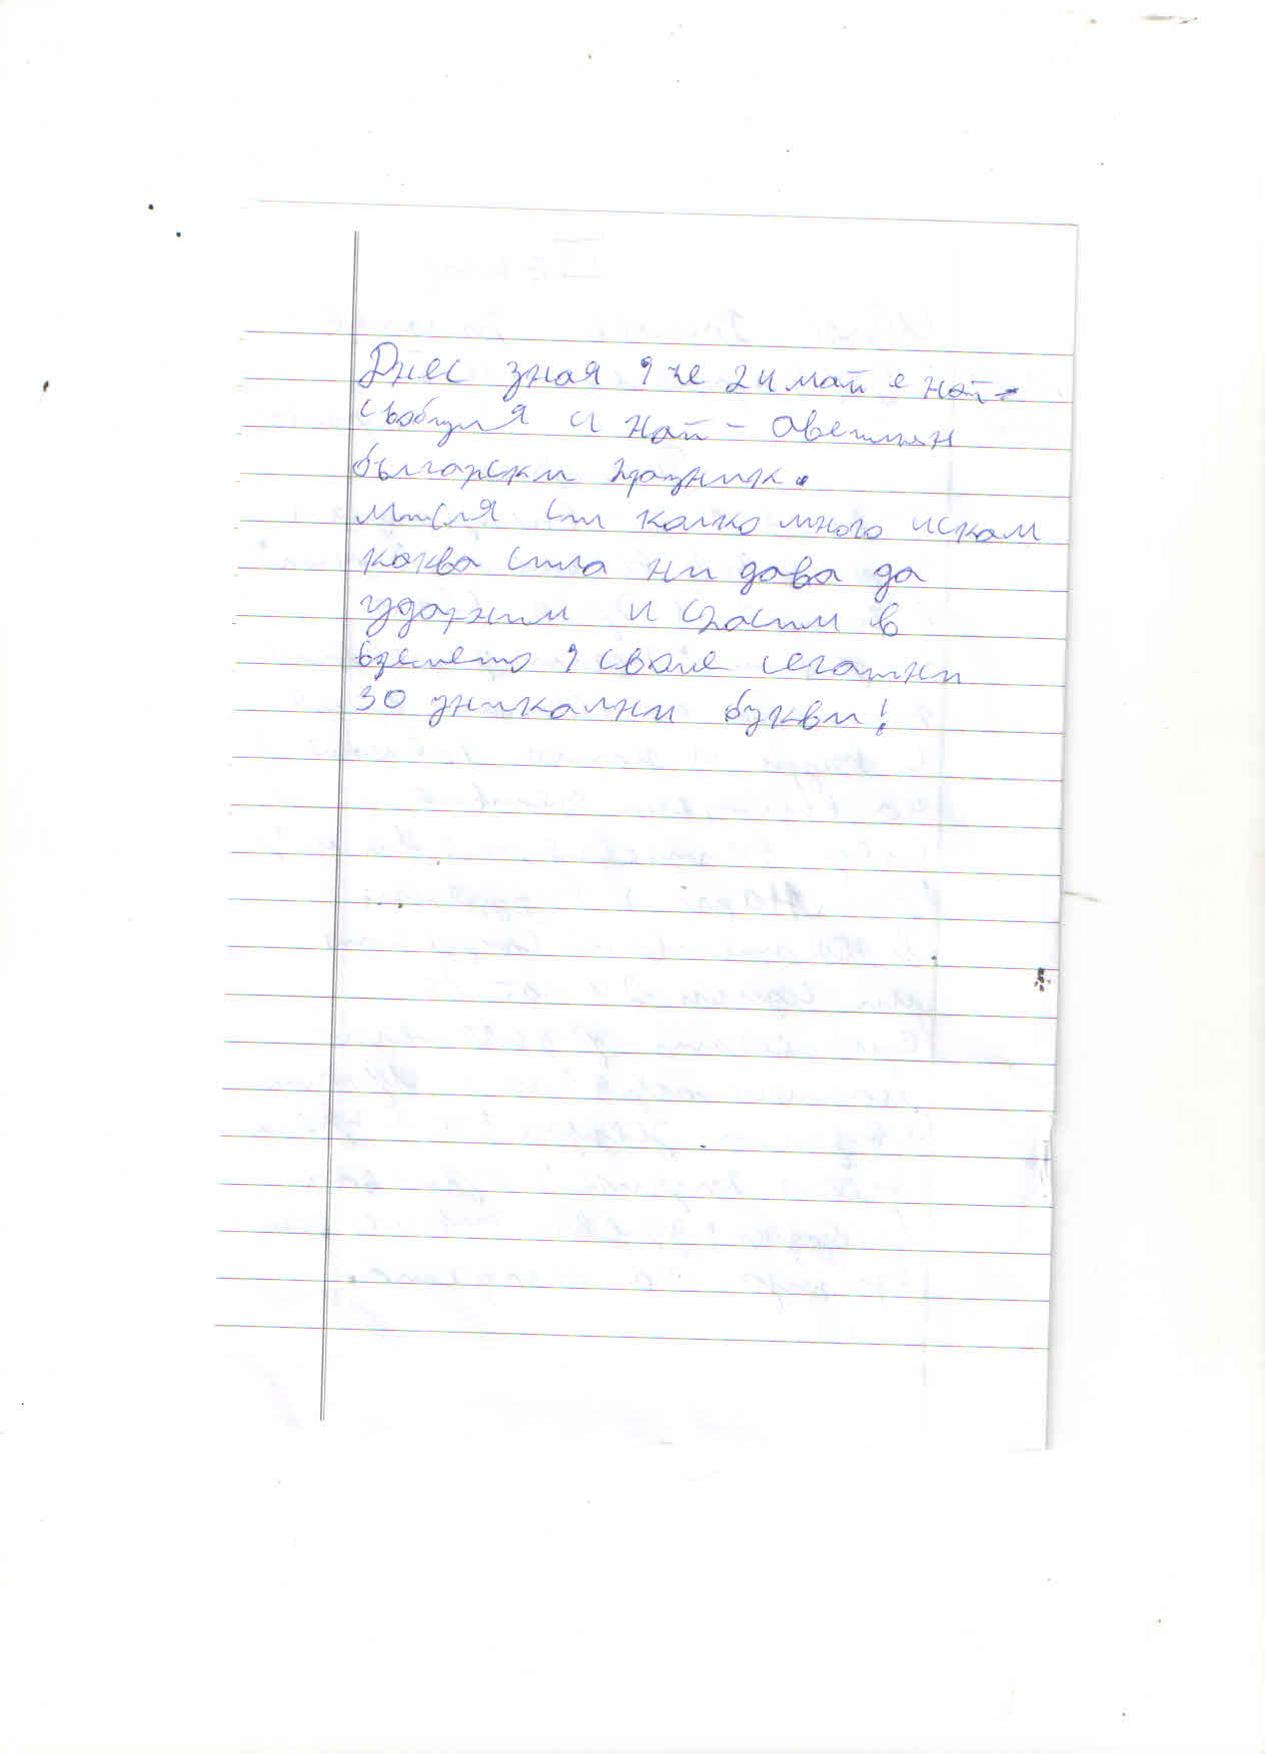 Днес зная, че 24 май е най-
и най-
български празник.
Мисля си колко много искам
каква сила ни дава да
ударним и спасим в
времето, своие сегашни
30 уникални букви!